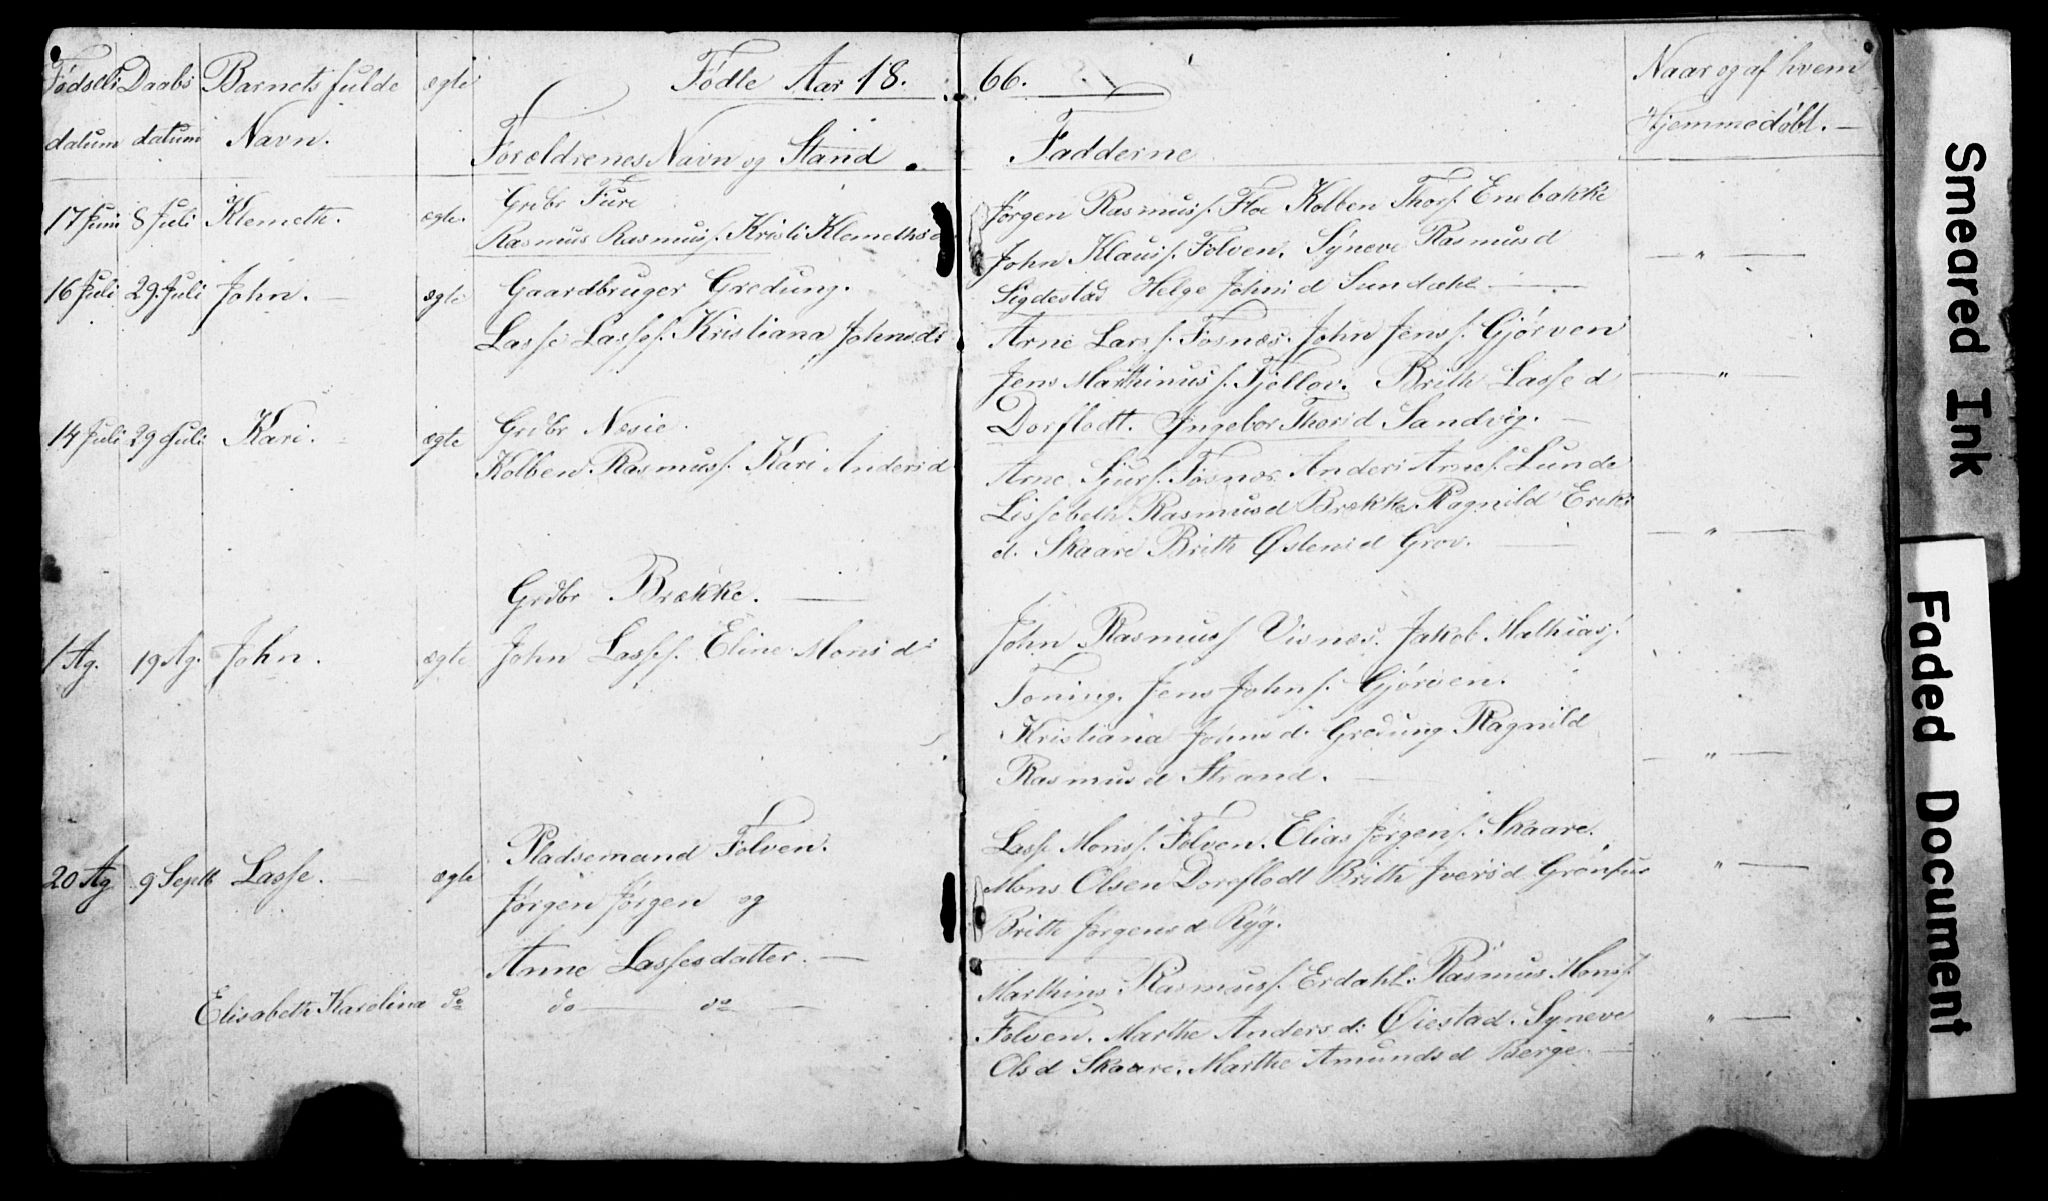 Fødte Aar 18. 66.
Fødsels Daabs Barnets fulde ægte
datum datum Navn.
Forældrenes Navn og Stand
Fadderne
Naar og af hvem
Hjemmedøbt. —
17 Juni 8 Juli Klemeth. ægte.
Grdbr Fure
Rasmus Rasmuss. Kristi Klemethsd
Jørgen Rasmuss. Floe Kolben Thors. Enebakke
John Klauss. Folven. Syneve Rasmusd
Sigdestad Helge Johnsd Sundahl
— " —
16 Juli 29. Juli John. — ægte
Gaardbruger Gredung.
Lasse Lasses. Kristiana Johnsd:
Arne Larss. Tosnæs. John Jenss. Gjørven
Jens Marthinuss. Tjellov. Brithe Lassed
Dorflodt. Ingebor Thorsd Sandvig. —
— " —
14 Juli 29 Juli Kari. ægte
Grdbr Nesie.
Kolben Rasmuss. Kari Andersd
Arne Sjurs. Tosnæs Anders Arnes. Lunde
Lissebeth Rasmusd Brække Ragnild Eriks
d. Skaare Brithe Østensd Grov.
— " —
1 Ag. 19 Ag. John. ægte
Grdbr Brække. —
John Lasses. Eline Monsd:
John Rasmuss. Visnes. Jakob Mathiass.
Toning. Jens Johns. Gjørven.
Kristiana Johnsd. Gredung Ragnild
Rasmusd Strand. —
— " —
20 Ag 9 Septb Lasse. — ægte
Pladsemand Folven.
Jørgen Jørgen og
Anne Lassesdatter. —
Lasse Monss. Folven. Elias Jørgens. Skaare.
Mons Olsen Dorflodt Brithe Iversd Grønfur
Brithe Jørgensd Ryg.
" —
Elisabeth Karolina do
do — do —
Marthins Rasmuss. Erdahl. Rasmus Monss.
Folven. Marthe Andersd: Øiestad. Syneve
Olsd Skaare. Marthe Amundsd Berge. —
" —
Smeared Ink
Faded Document